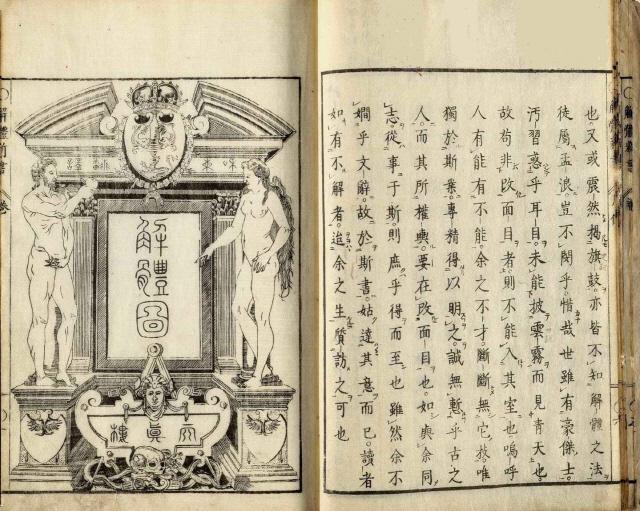 也又或震然揭旗鼓。亦皆不知解體之法
徒屬孟浪。豈不閔乎。惜哉世雖有豪傑士。
汚習惑乎耳目。未能披雲霧而見青天也。
故苟非改面目者。則不能入其室也。嗚呼
人有能有不能。余之不才。斷斷無它技。唯
獨於斯業。專精得以明之。誠無慙乎古之
人。而其所權輿。要在改面目也。如與余同
志。從事于斯。則庶乎得而至也。雖然余不
嫺乎文辭。故於斯書。姑達其意而已。讀者
如有不解者。迨余之生質訪之可也
解體圖
天眞樓
解體新書 卷